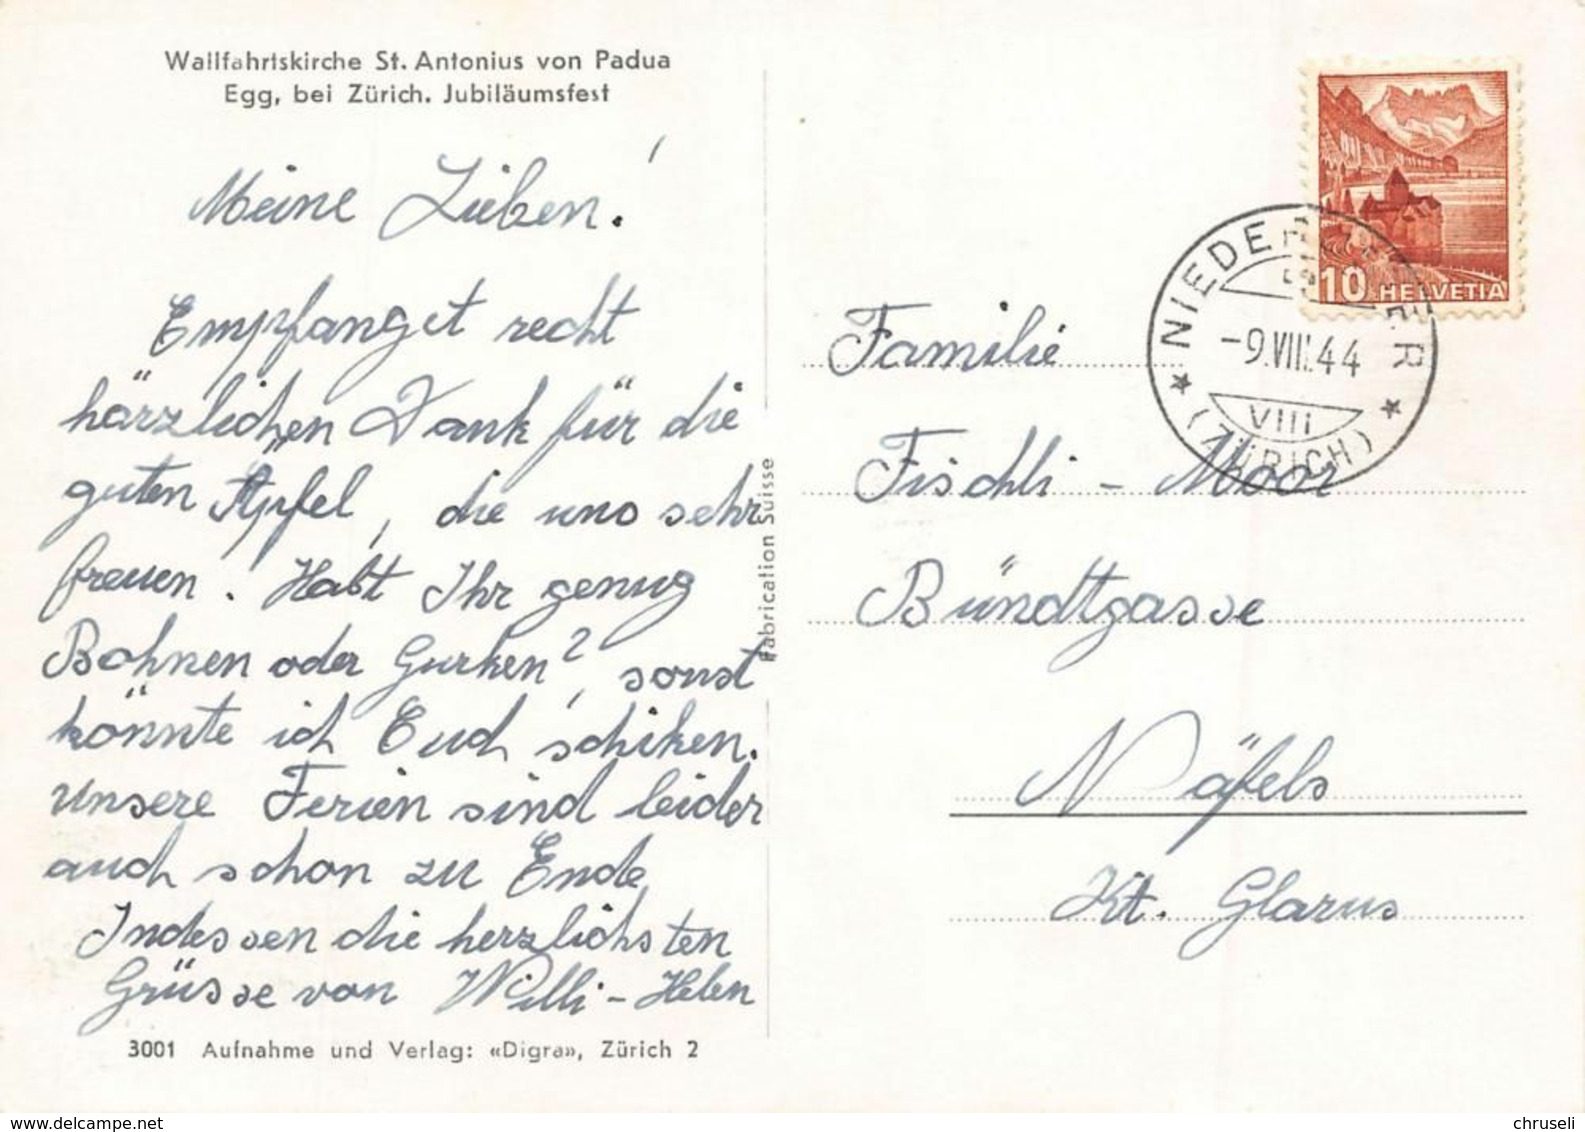 Wallfahrtskirche St. Antonius von Padua
Egg, bei Zürich. Jubiläumsfest
Meine Lieben!
Empfanget recht
härzlichen Dank für die
guten Äpfel, die uns sehr
freuen. Habt Ihr genug
Bohnen oder Gurken?, sonst
könnte ich Euch schiken.
Unsere Ferien sind leider
auch schon zu Ende,
Indessen die herzlichsten
Grüsse von Willi - Helen
3001 Aufnahme und Verlag: «Digra», Zürich 2
Fabrication Suisse
10 HELVETIA
-9.VIII.44
VIII
(ZÜRICH)
Familie
Fischli - Moor
Bündtgasse
Näfels
Kt. Glarus
www.delcampe.net
chruseli